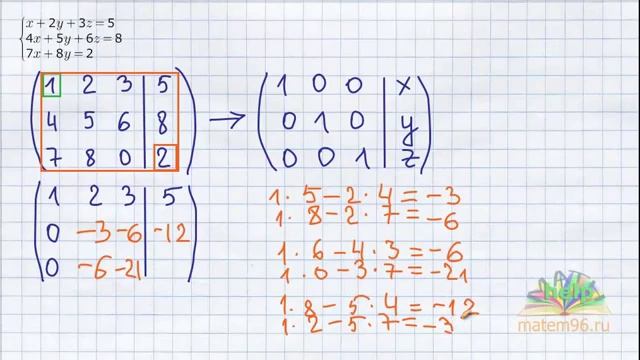 x + 2y + 3z = 5
4x + 5y + 6z = 8
7x + 8y = 2
1 2 3 5
4 5 6 8
7 8 0 2
1 0 0 x
0 1 0 y
0 0 1 z
1 2 3 5
0 -3 -6 -12
0 -6 -21
1 · 5 - 2 · 4 = -3
1 · 8 - 2 · 7 = -6
1 · 6 - 4 · 3 = -6
1 · 0 - 3 · 7 = -21
1 · 8 - 5 · 4 = -12
1 · 2 - 5 · 7 = -3
help
matem96.ru